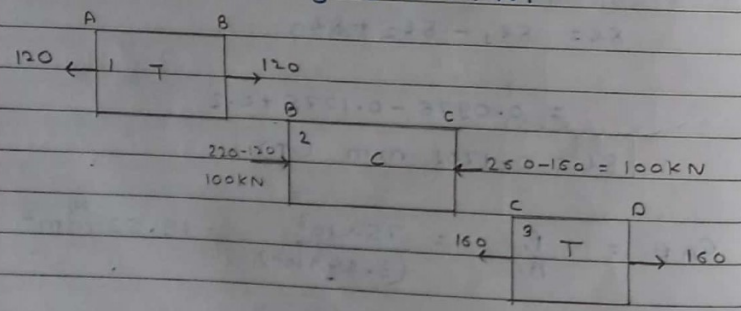 A B
120 1 T 120
B C
220-120 2 C 260-160 = 100KN
100KN
C D
160 3 T 160